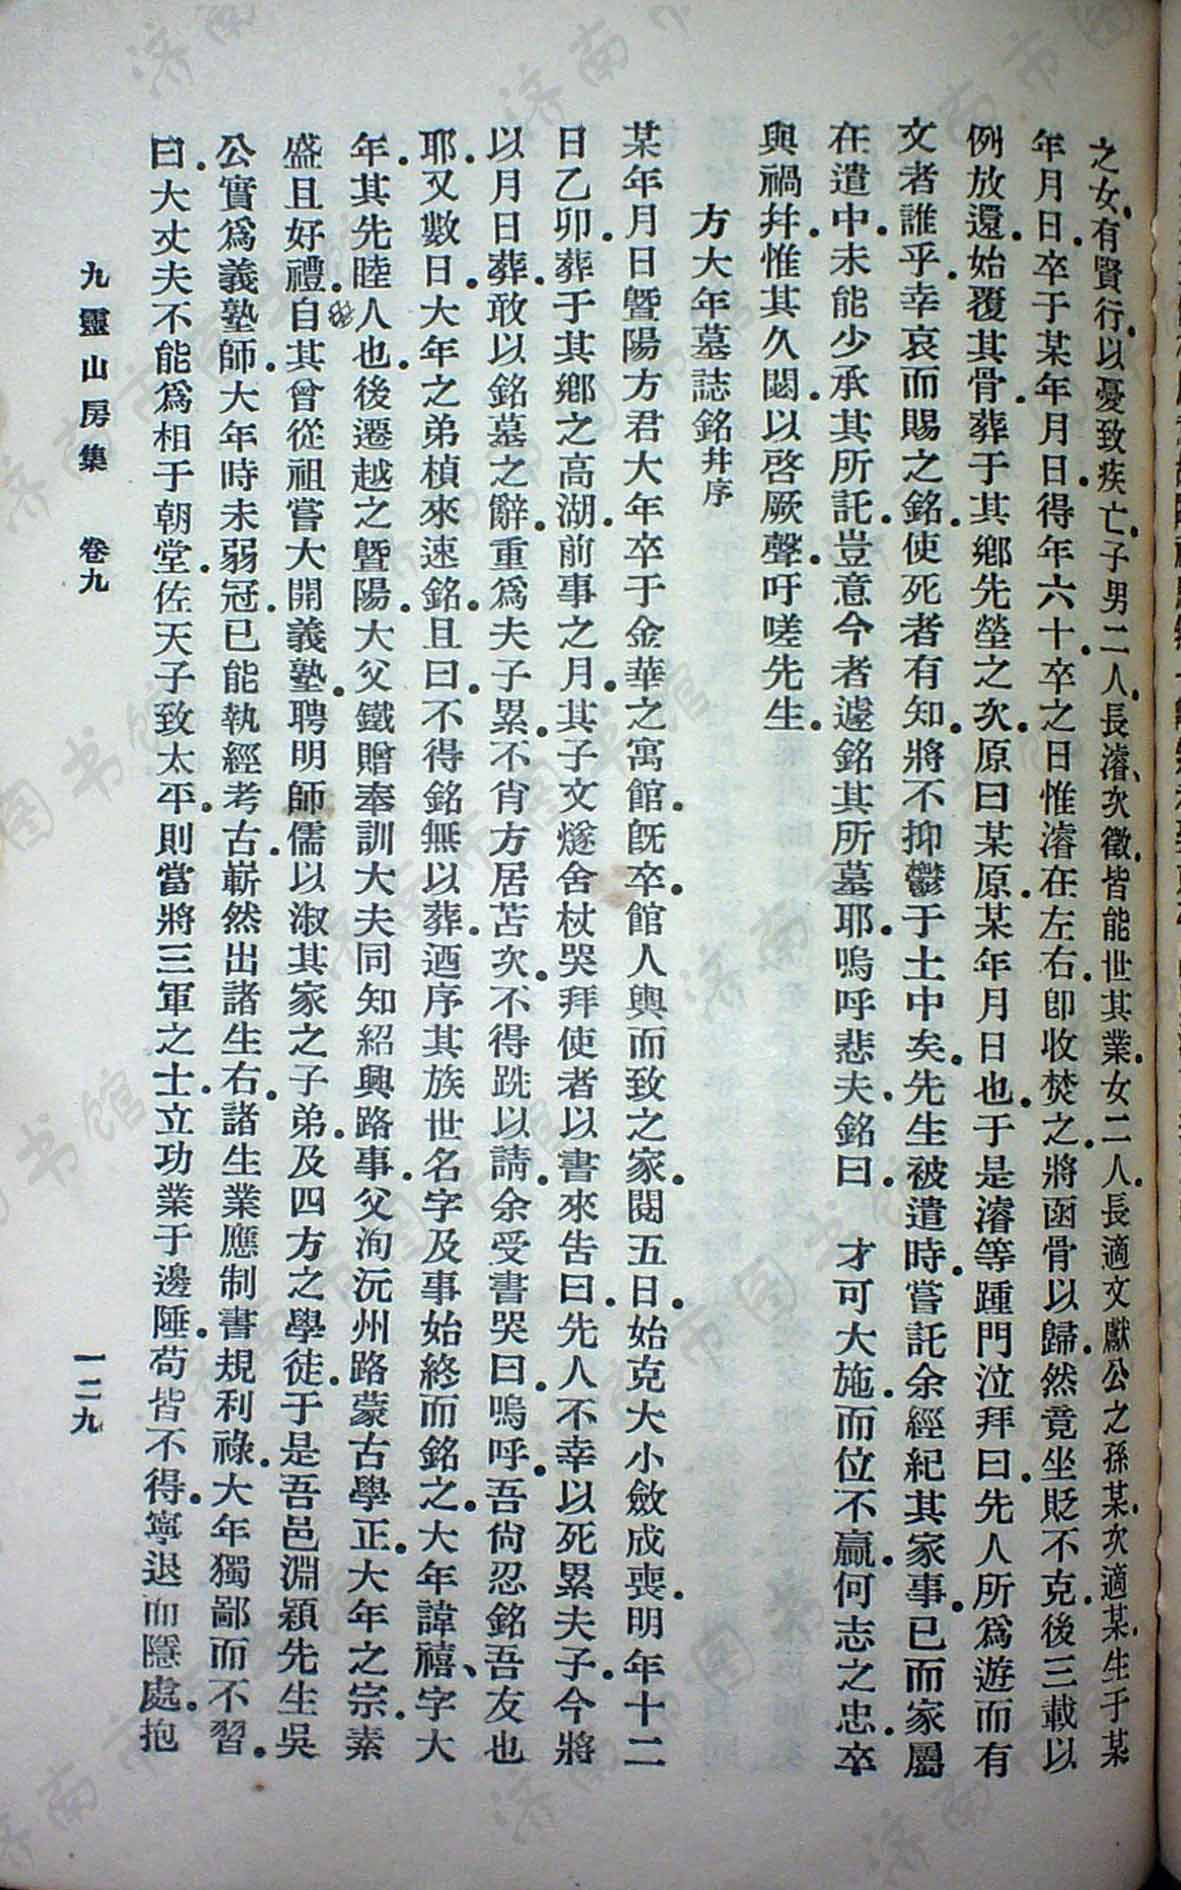 之女。有賢行。以憂致疾亡。子男二人。長濬、次徵。皆能世其業。女二人。長適文獻公之孫某。次適某。生于某
年月日。卒于某年月日。得年六十。卒之日惟濬在左右。卽收焚之。將函骨以歸。然竟坐貶不克。後三載以
例放還。始覆其骨。葬于其鄕先塋之次。原曰某原。某年月日也。于是濬等踵門泣拜曰。先人所爲遊而有
文者誰乎。幸哀而賜之銘。使死者有知。將不抑鬱于土中矣。先生被遣時。嘗託余經紀其家事。已而家屬
在遣中。未能少承其所託。豈意今者遽銘其所墓耶。嗚呼悲夫。銘曰。 才可大施。而位不贏。何志之忠。卒
與禍幷。惟其久閟。以啓厥聲。吁嗟先生。
方大年墓誌銘幷序
某年月日曁陽方君大年卒于金華之寓館。旣卒。館人輿而致之家。閱五日。始克大小斂成喪。明年十二
日乙卯。葬于其鄕之高湖。前事之月。其子文燧舍杖哭拜使者以書來告曰。先人不幸以死累夫子。今將
以月日葬。敢以銘墓之辭。重爲夫子累。不肖方居苫次。不得跣以請。余受書哭曰。嗚呼。吾尙忍銘吾友也
耶。又數日。大年之弟楨來速銘。且曰。不得銘無以葬。迺序其族世名字及事始終而銘之。大年諱禧、字大
年。其先睦人也。後遷越之曁陽。大父鐵贈奉訓大夫同知紹興路事。父洵沅州路蒙古學正。大年之宗。素
盛且好禮。自其曾從祖嘗大開義塾。聘明師儒以淑其家之子弟。及四方之學徒。于是吾邑淵穎先生吳
公實爲義塾師。大年時未弱冠。已能執經考古。嶄然出諸生右。諸生業應制書規利祿。大年獨鄙而不習。
曰。大丈夫不能爲相于朝堂。佐天子致太平。則當將三軍之士。立功業于邊陲。苟皆不得。寧退而隱處。抱
九靈山房集 卷九
一二九